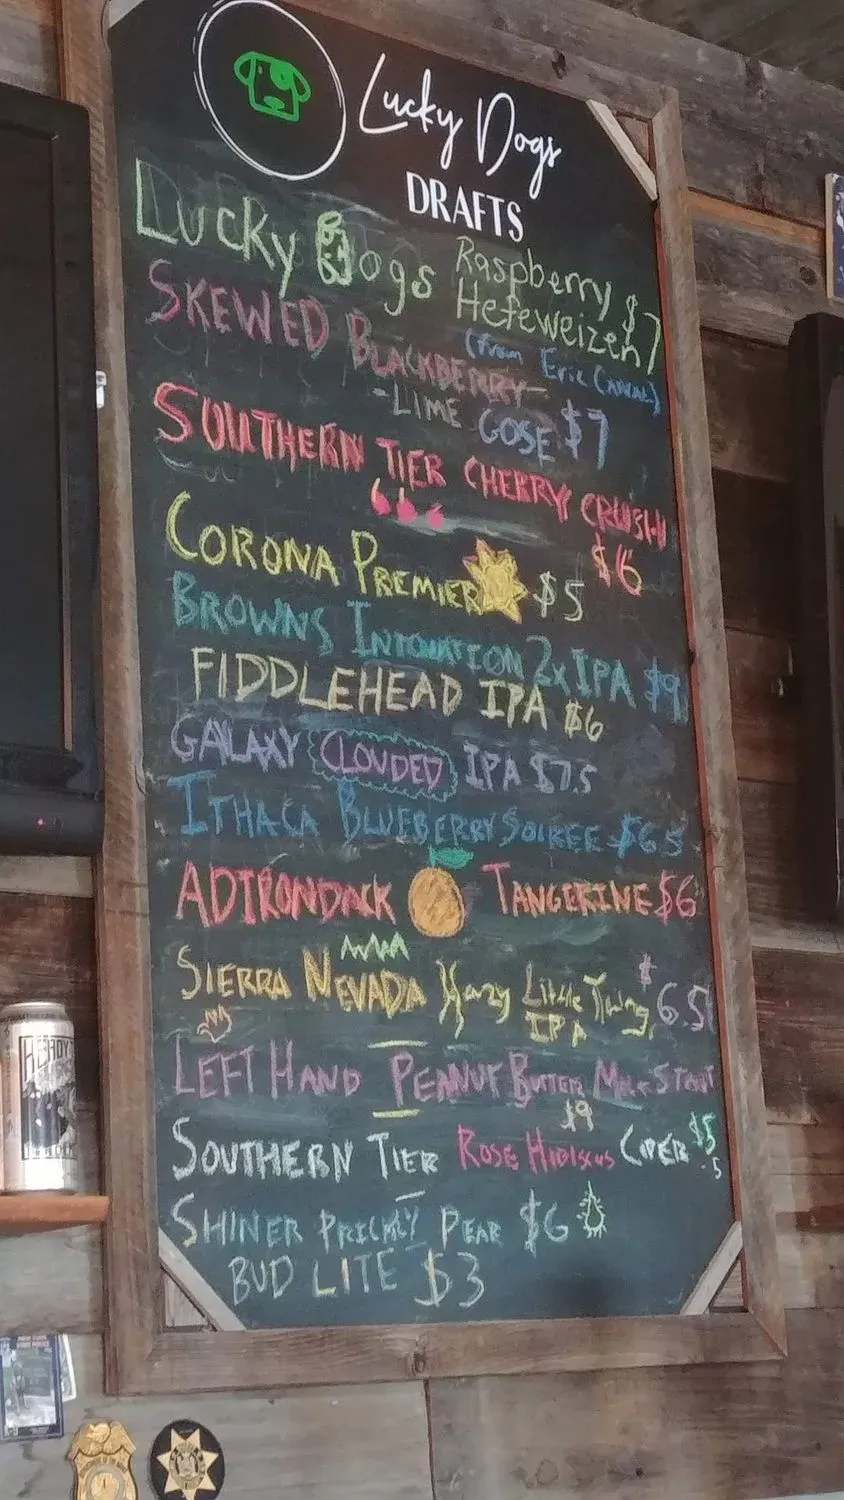 Lucky Dogs
DRAFTS
Lucky Dogs Raspberry
Hefeweizen $7
(from Eric Canal)
SKEWED BLACKBERRY
-LIME GOSE $7
SOUTHERN TIER CHERRY CRUSH
$6
CORONA PREMIER $5
BROWNS INTONATION 2x IPA $9
FIDDLEHEAD IPA $6
GALAXY CLOUDED IPA $7.5
ITHACA BLUEBERRY SOIREE $6.5
ADIRONDACK TANGERINE $6
SIERRA NEVADA Hazy Little Thing $6.5
IPA
LEFT HAND PEANUT BUTTER MILK STOUT
$9
SOUTHERN TIER ROSE HIBISCUS CIDER $5.5
SHINER PRICKLY PEAR $6
BUD LITE $3